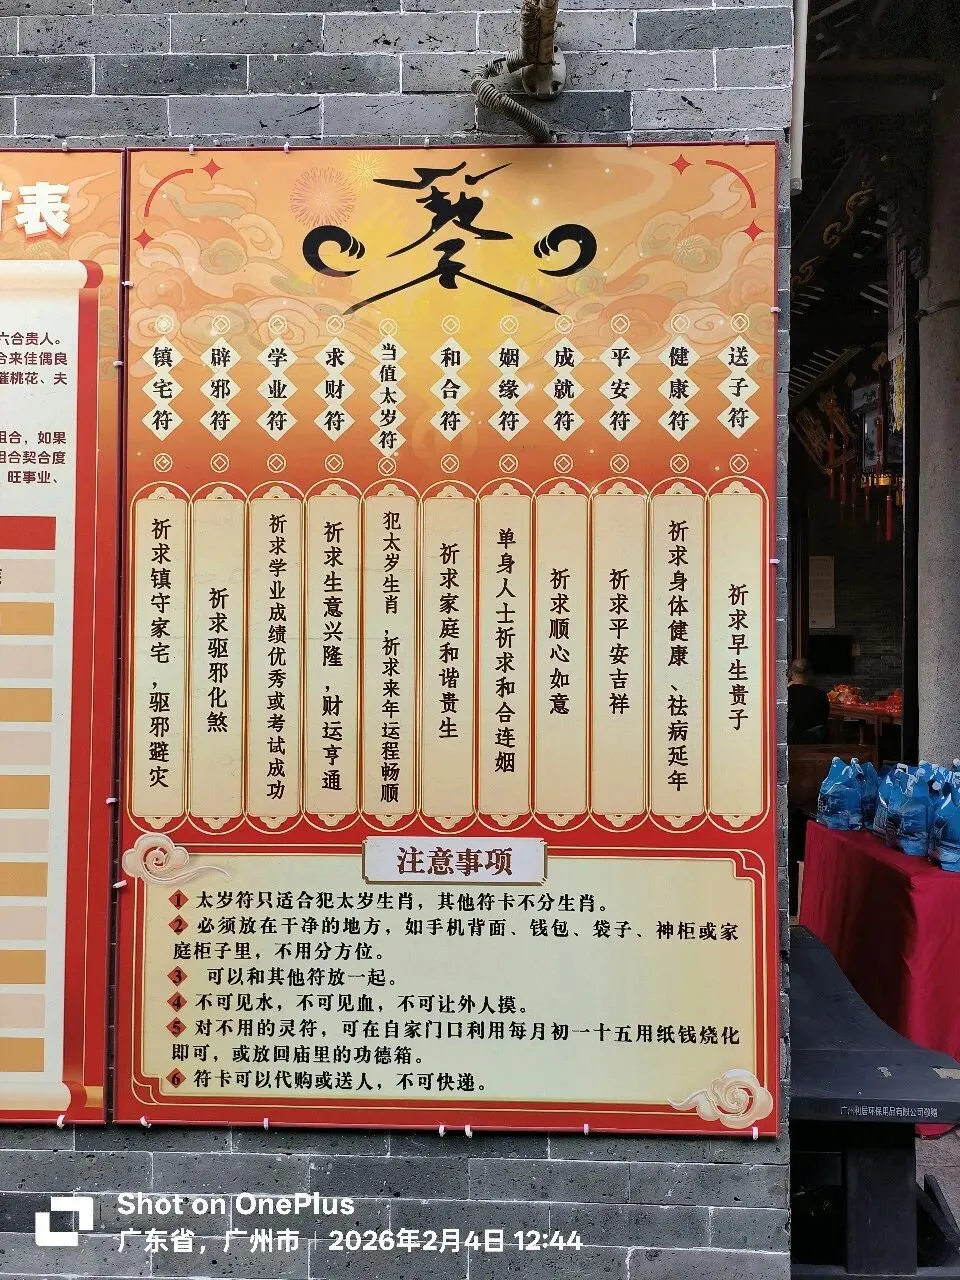 表
六合贵人。
合来佳偶良
催桃花、夫
组合，如果
组合契合度
旺事业、
镇宅符
辟邪符
学业符
求财符
当值太岁符
和合符
姻缘符
成就符
平安符
健康符
送子符
祈求镇守家宅，驱邪避灾
祈求驱邪化煞
祈求学业成绩优秀或考试成功
祈求生意兴隆，财运亨通
犯太岁生肖，祈求来年运程畅顺
祈求家庭和谐贵生
单身人士祈求和合连姻
祈求顺心如意
祈求平安吉祥
祈求身体健康、祛病延年
祈求早生贵子
注意事项
1 太岁符只适合犯太岁生肖，其他符卡不分生肖。
2 必须放在干净的地方，如手机背面、钱包、袋子、神柜或家
庭柜子里，不用分方位。
3 可以和其他符放一起。
4 不可见水，不可见血，不可让外人摸。
5 对不用的灵符，可在自家门口利用每月初一十五用纸钱烧化
即可，或放回庙里的功德箱。
6 符卡可以代购或送人，不可快递。
广州利居环保用品有限公司敬赠
Shot on OnePlus
广东省，广州市 2026年2月4日 12:44